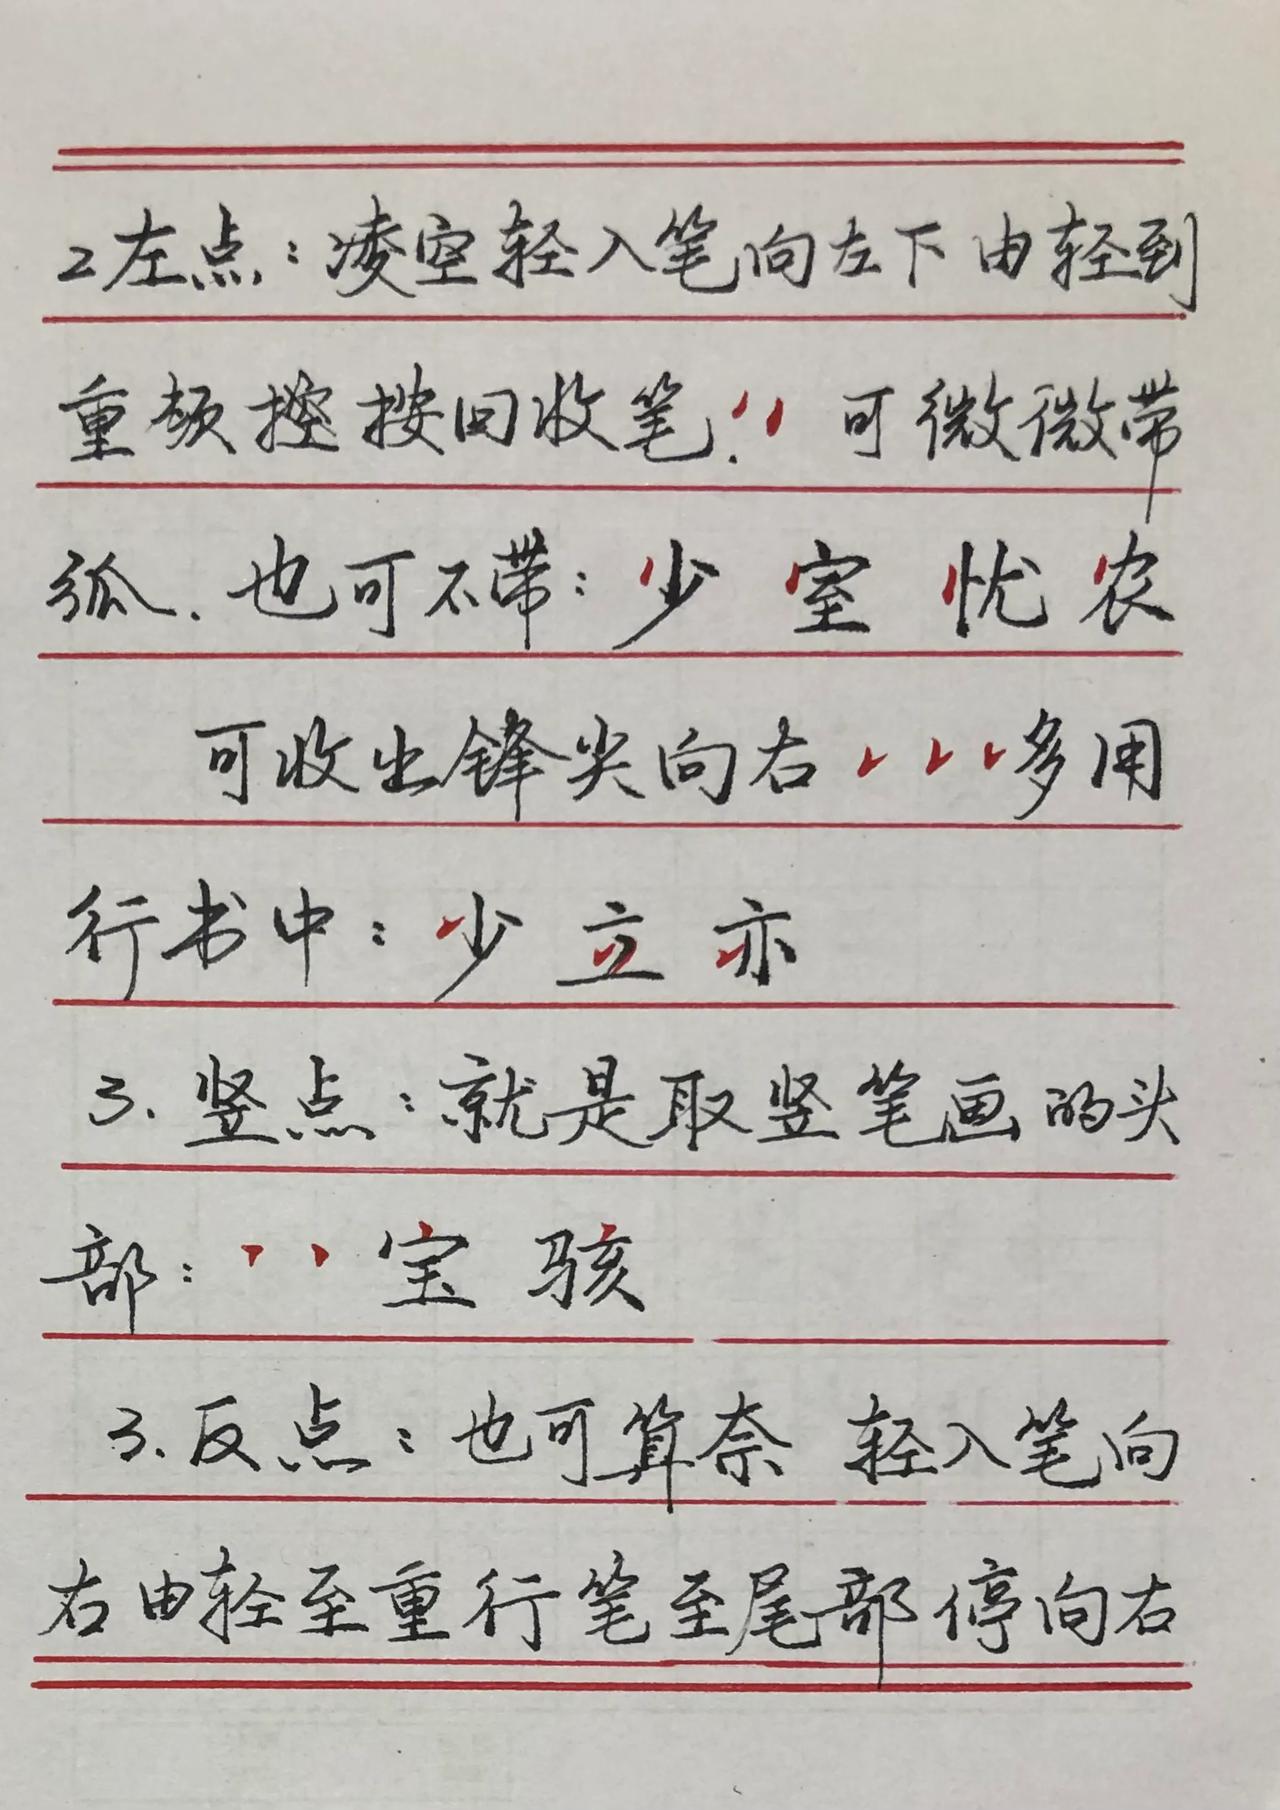 2左点：凌空轻入笔向左下由轻到
重顿控按回收笔.可微微带
弧.也可不带：少室忧农
可收出锋尖向右多用
行书中：少立亦
3.竖点：就是取竖笔画的头
部：宝骇
3.反点：也可算奈轻入笔向
右由轻至重行笔至尾部停向右